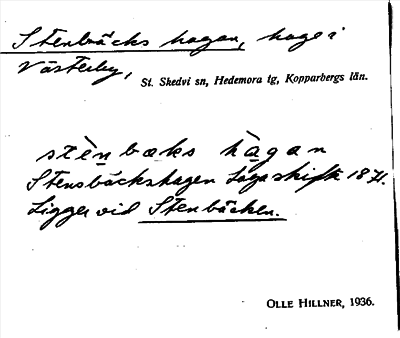 Stenbäcks hagen, hage i
Västerby,
St. Skedvi sn, Hedemora tg, Kopparbergs län.
stènbæks hàgan
Stensbäckshagen Laga skifte 1871.
Ligger vid Stenbäcken.
OLLE HILLNER, 1936.